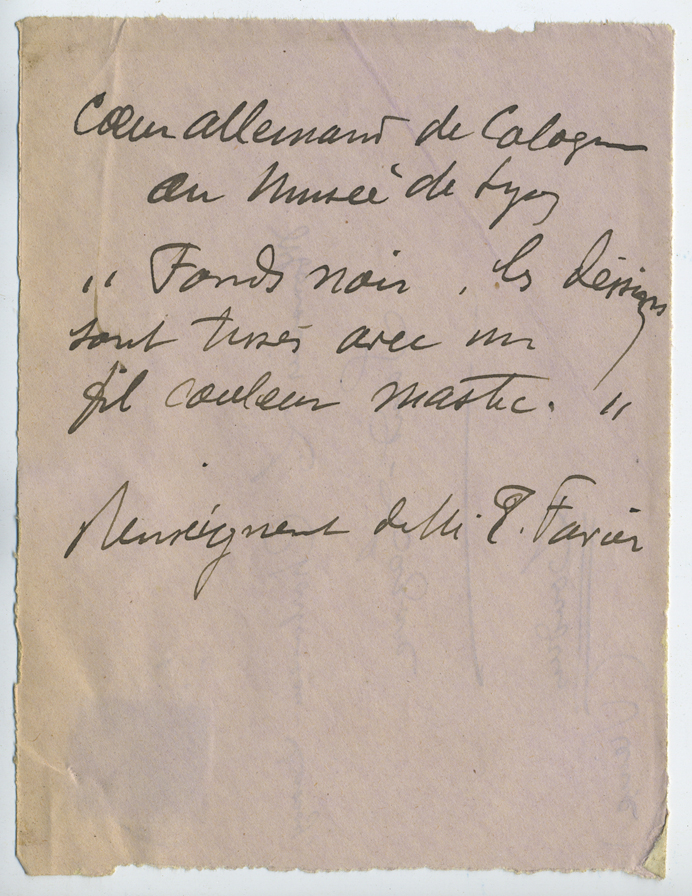 Cœur allemand de Cologne
au Musée de Lyon
" Fonds noir, les dessins
sont tissés avec un
fil couleur mastic. "
Renseignement de M. P. Favier